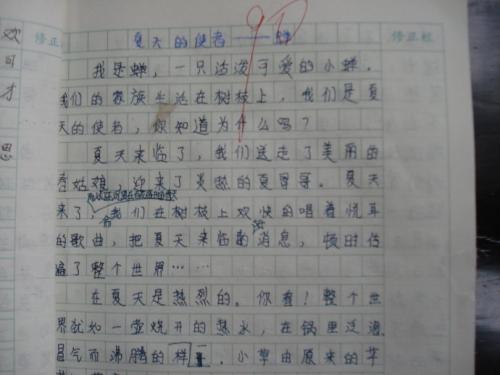 欢
可
才
思
修正栏
夏天的使者——蝉
90
修正栏
我是蝉，一只活泼可爱的小蝉。
我们的家族生活在树枝上，我们是夏
天的使者，你知道为什么吗？
夏天来临了，我们送走了美丽的
春姑娘，迎来了炎热的夏哥哥。夏天
来了，我们在树枝上欢快的唱着悦耳
的歌曲，把夏天来临的消息，顿时传
遍了整个世界……
在夏天是热烈的。你看！整个世
界就如一壶烧开的热水，在锅里泛泡
冒气而沸腾的样，小草由原来的